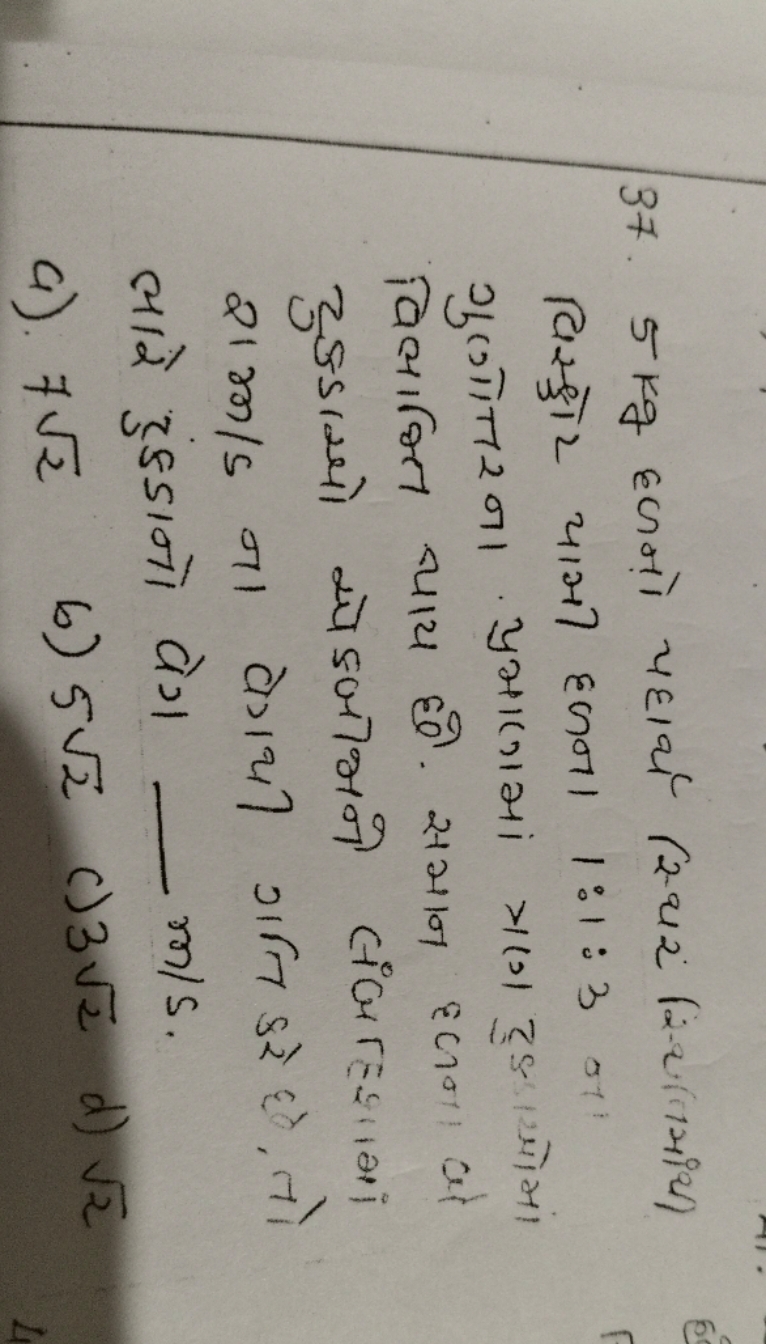 37. 5 kg દળનો પદાર્થ સ્થિર સ્થિતિમાંથી
વિસ્ફોટ પામી દળના 1:1:3 ના
ગુણોત્તરના પ્રમાણમાં ત્રણ ટુકડાઓમાં
વિભાજિત થાય છે. સમાન દળના બે
ટુકડાઓ એકબીજાની લંબદિશામાં
21 m/s ના વેગથી ગતિ કરે છે, તો
ભારે ટુકડાનો વેગ ___ m/s.
a). 7√2 b) 5√2 c) 3√2 d) √2